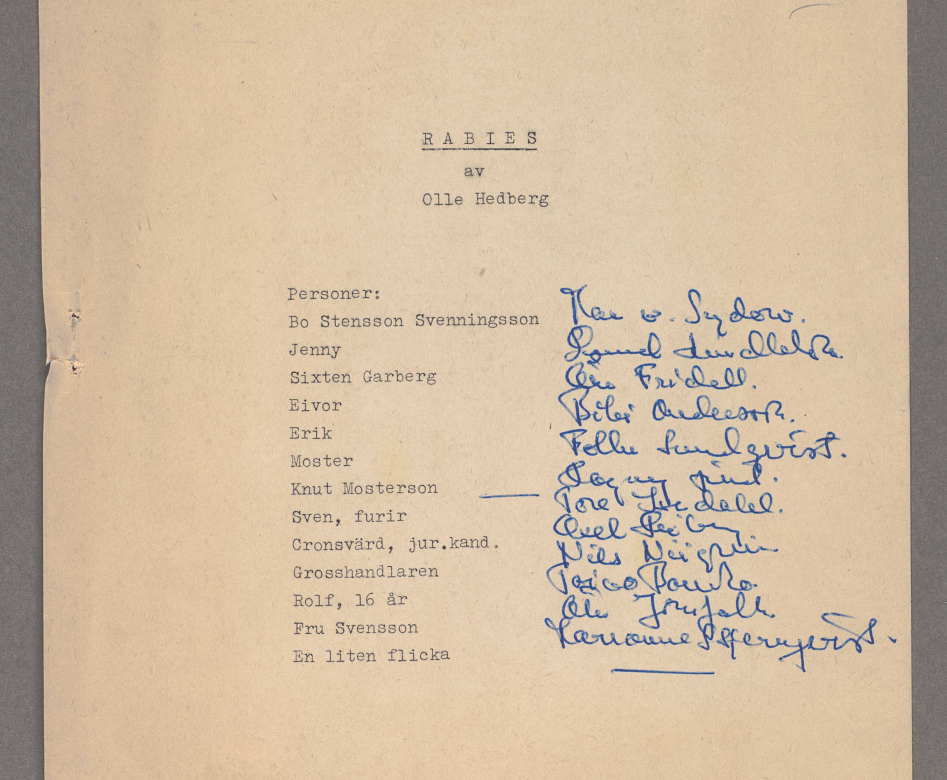 R A B I E S
av
Olle Hedberg
Personer:
Bo Stensson Svenningsson Max v. Sydow.
Jenny Gunnel Lindblom.
Sixten Garberg Åke Fridell.
Eivor Bibi Andersson.
Erik Folke Sundqvist.
Moster Dagny Lind.
Knut Mosterson — Tore
Sven, furir Axel
Cronsvärd, jur.kand. Nils
Grosshandlaren Toivo Pawlo.
Rolf, 16 år
Fru Svensson
En liten flicka